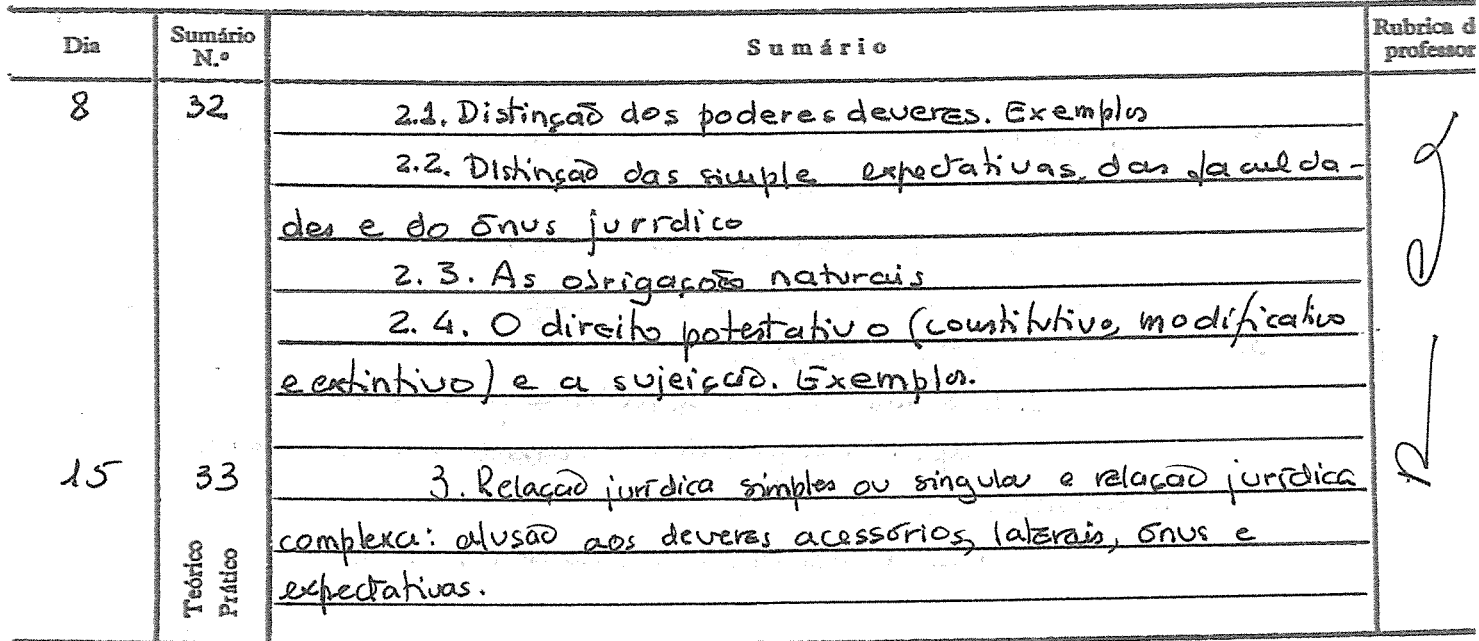 Dia Sumário N.º Sumário Rubrica d professor
8 32 2.1. Distinção dos poderes deveres. Exemplos
2.2. Distinção das simple expectativas, das faculda-
des e do ónus jurídico
2.3. As obrigações naturais
2.4. O direito potestativo (constitutivo, modificativo
e extintivo) e a sujeição. Exemplos.
15 33 3. Relação jurídica simples ou singular e relação jurídica
complexa: alusão aos deveres acessórios, laterais, ónus e
expectativas.
Teórico
Prático